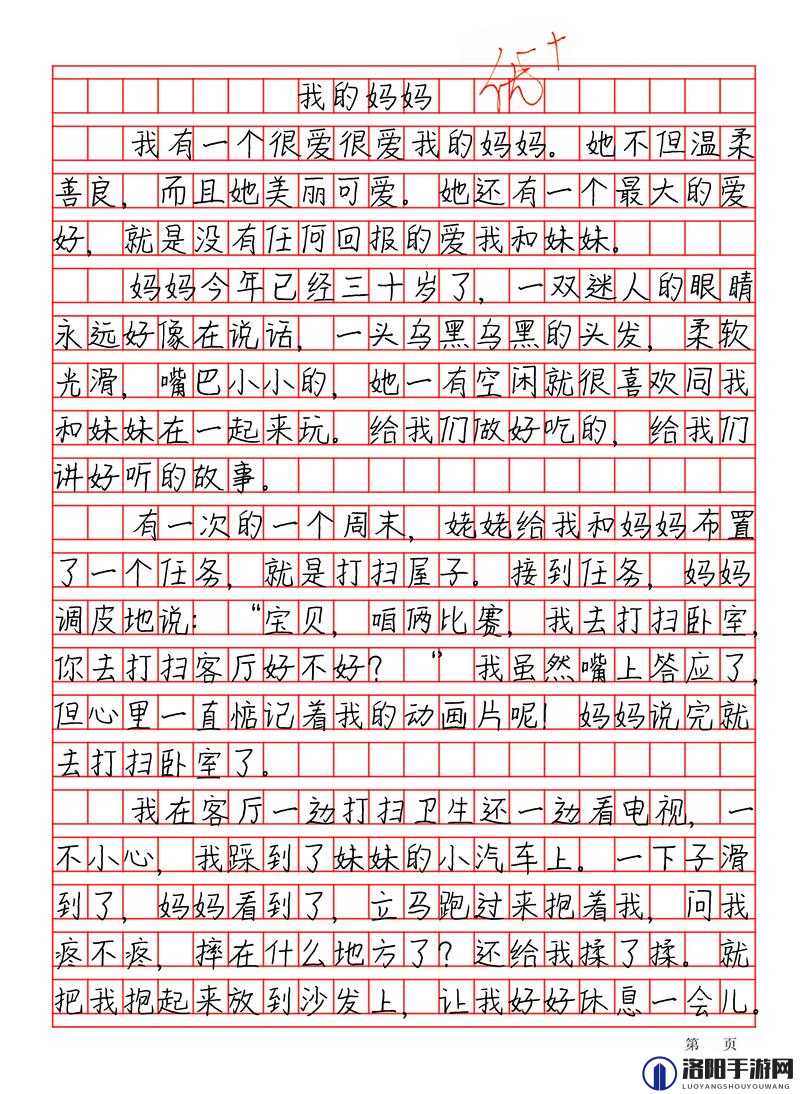 我的妈妈
优+
我有一个很爱很爱我的妈妈。她不但温柔
善良，而且她美丽可爱。她还有一个最大的爱
好，就是没有任何回报的爱我和妹妹。
妈妈今年已经三十岁了，一双迷人的眼睛
永远好像在说话，一头乌黑乌黑的头发，柔软
光滑，嘴巴小小的，她一有空闲就很喜欢同我
和妹妹在一起来玩。给我们做好吃的，给我们
讲好听的故事。
有一次的一个周末，姥姥给我和妈妈布置
了一个任务，就是打扫屋子。接到任务，妈妈
调皮地说：“宝贝，咱俩比赛，我去打扫卧室，
你去打扫客厅好不好？”我虽然嘴上答应了，
但心里一直惦记着我的动画片呢！妈妈说完就
去打扫卧室了。
我在客厅一边打扫卫生还一边看电视，一
不小心，我踩到了妹妹的小汽车上。一下子滑
到了，妈妈看到了，立马跑过来抱着我，问我
疼不疼，摔在什么地方了？还给我揉了揉。就
把我抱起来放到沙发上，让我好好休息一会儿。
第 页
洛阳手游网
LUOYANGSHOUYOUWANG